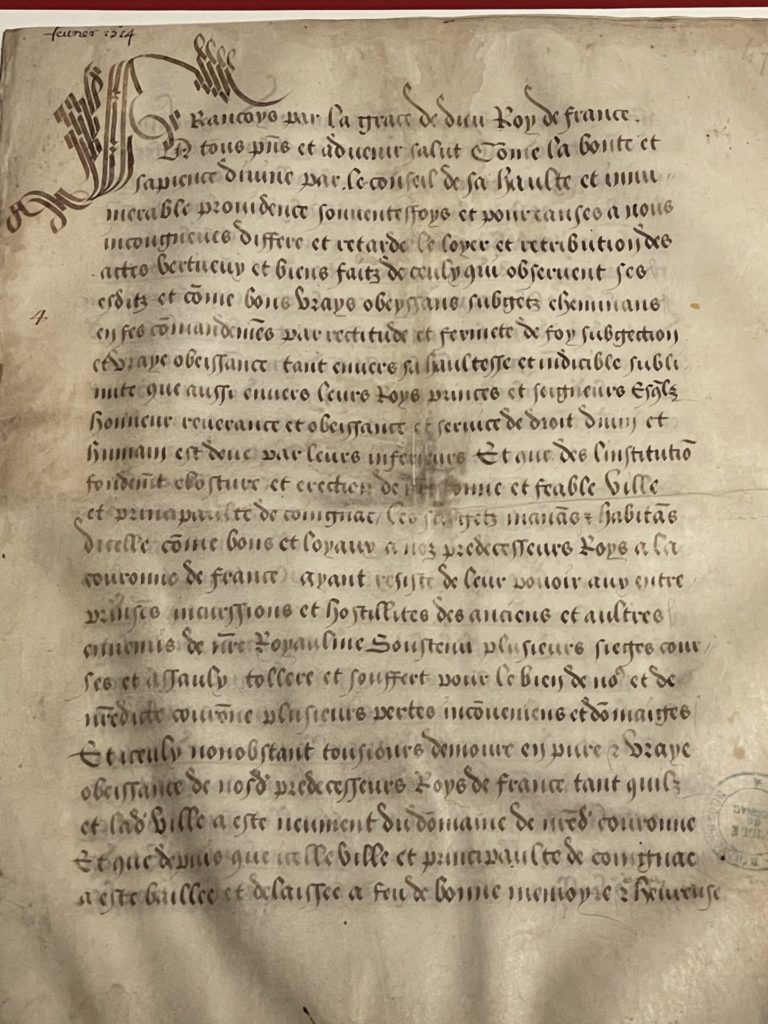 feurier 1514
Francoys par la grace de dieu Roy de france.
A tous pns et aduenir salut Come la bonte et
sapience diuine par le conseil de sa haulte et innu
merable prouidence souuenteffoys et pour causes a nous
incongneues differe et retarde le loyer et retribution des
actes vertueux et biens faitz de ceulx qui obseruent ses
esditz et come bons vrays obeyssans subgetz cheminans
en ses comandemens par rectitude et fermete de foy subgection
et vraye obeissance tant enuers sa haultesse et indicible subli
mite que aussi enuers leurs Roys princes et seigneurs Esqlz
honneur reuerance et obeissance et seruice de droit diuin et
humain est deue par leurs inferieurs Et que des linstitutio
fondemt closture et erection de bonne et feable ville
et principaulte de coingnac les subgetz manas & habitas
dicelle come bons et loyaux a noz predecesseurs Roys a la
couronne de france ayant resiste de leur pouoir aux entre
prinses incurssions et hostillites des anciens et aultres
ennemis de nre Royaulme Soustenu plusieurs sieges cour
ses et assaulx tollere et souffert pour le bien de nos et de
nredicte courone plusieurs pertes inconueniens et domaiges
Et iceulx nonobstant tousiours demoure en pure & vraye
obeissance de nosd predecesseurs Roys de france tant quilz
et lad ville a este nuement du domaine de nred couronne
Et que depuis que icelle ville et principaulte de coingnac
a este baillee et delaissee a feu de bonne memoyre & heureuse
4